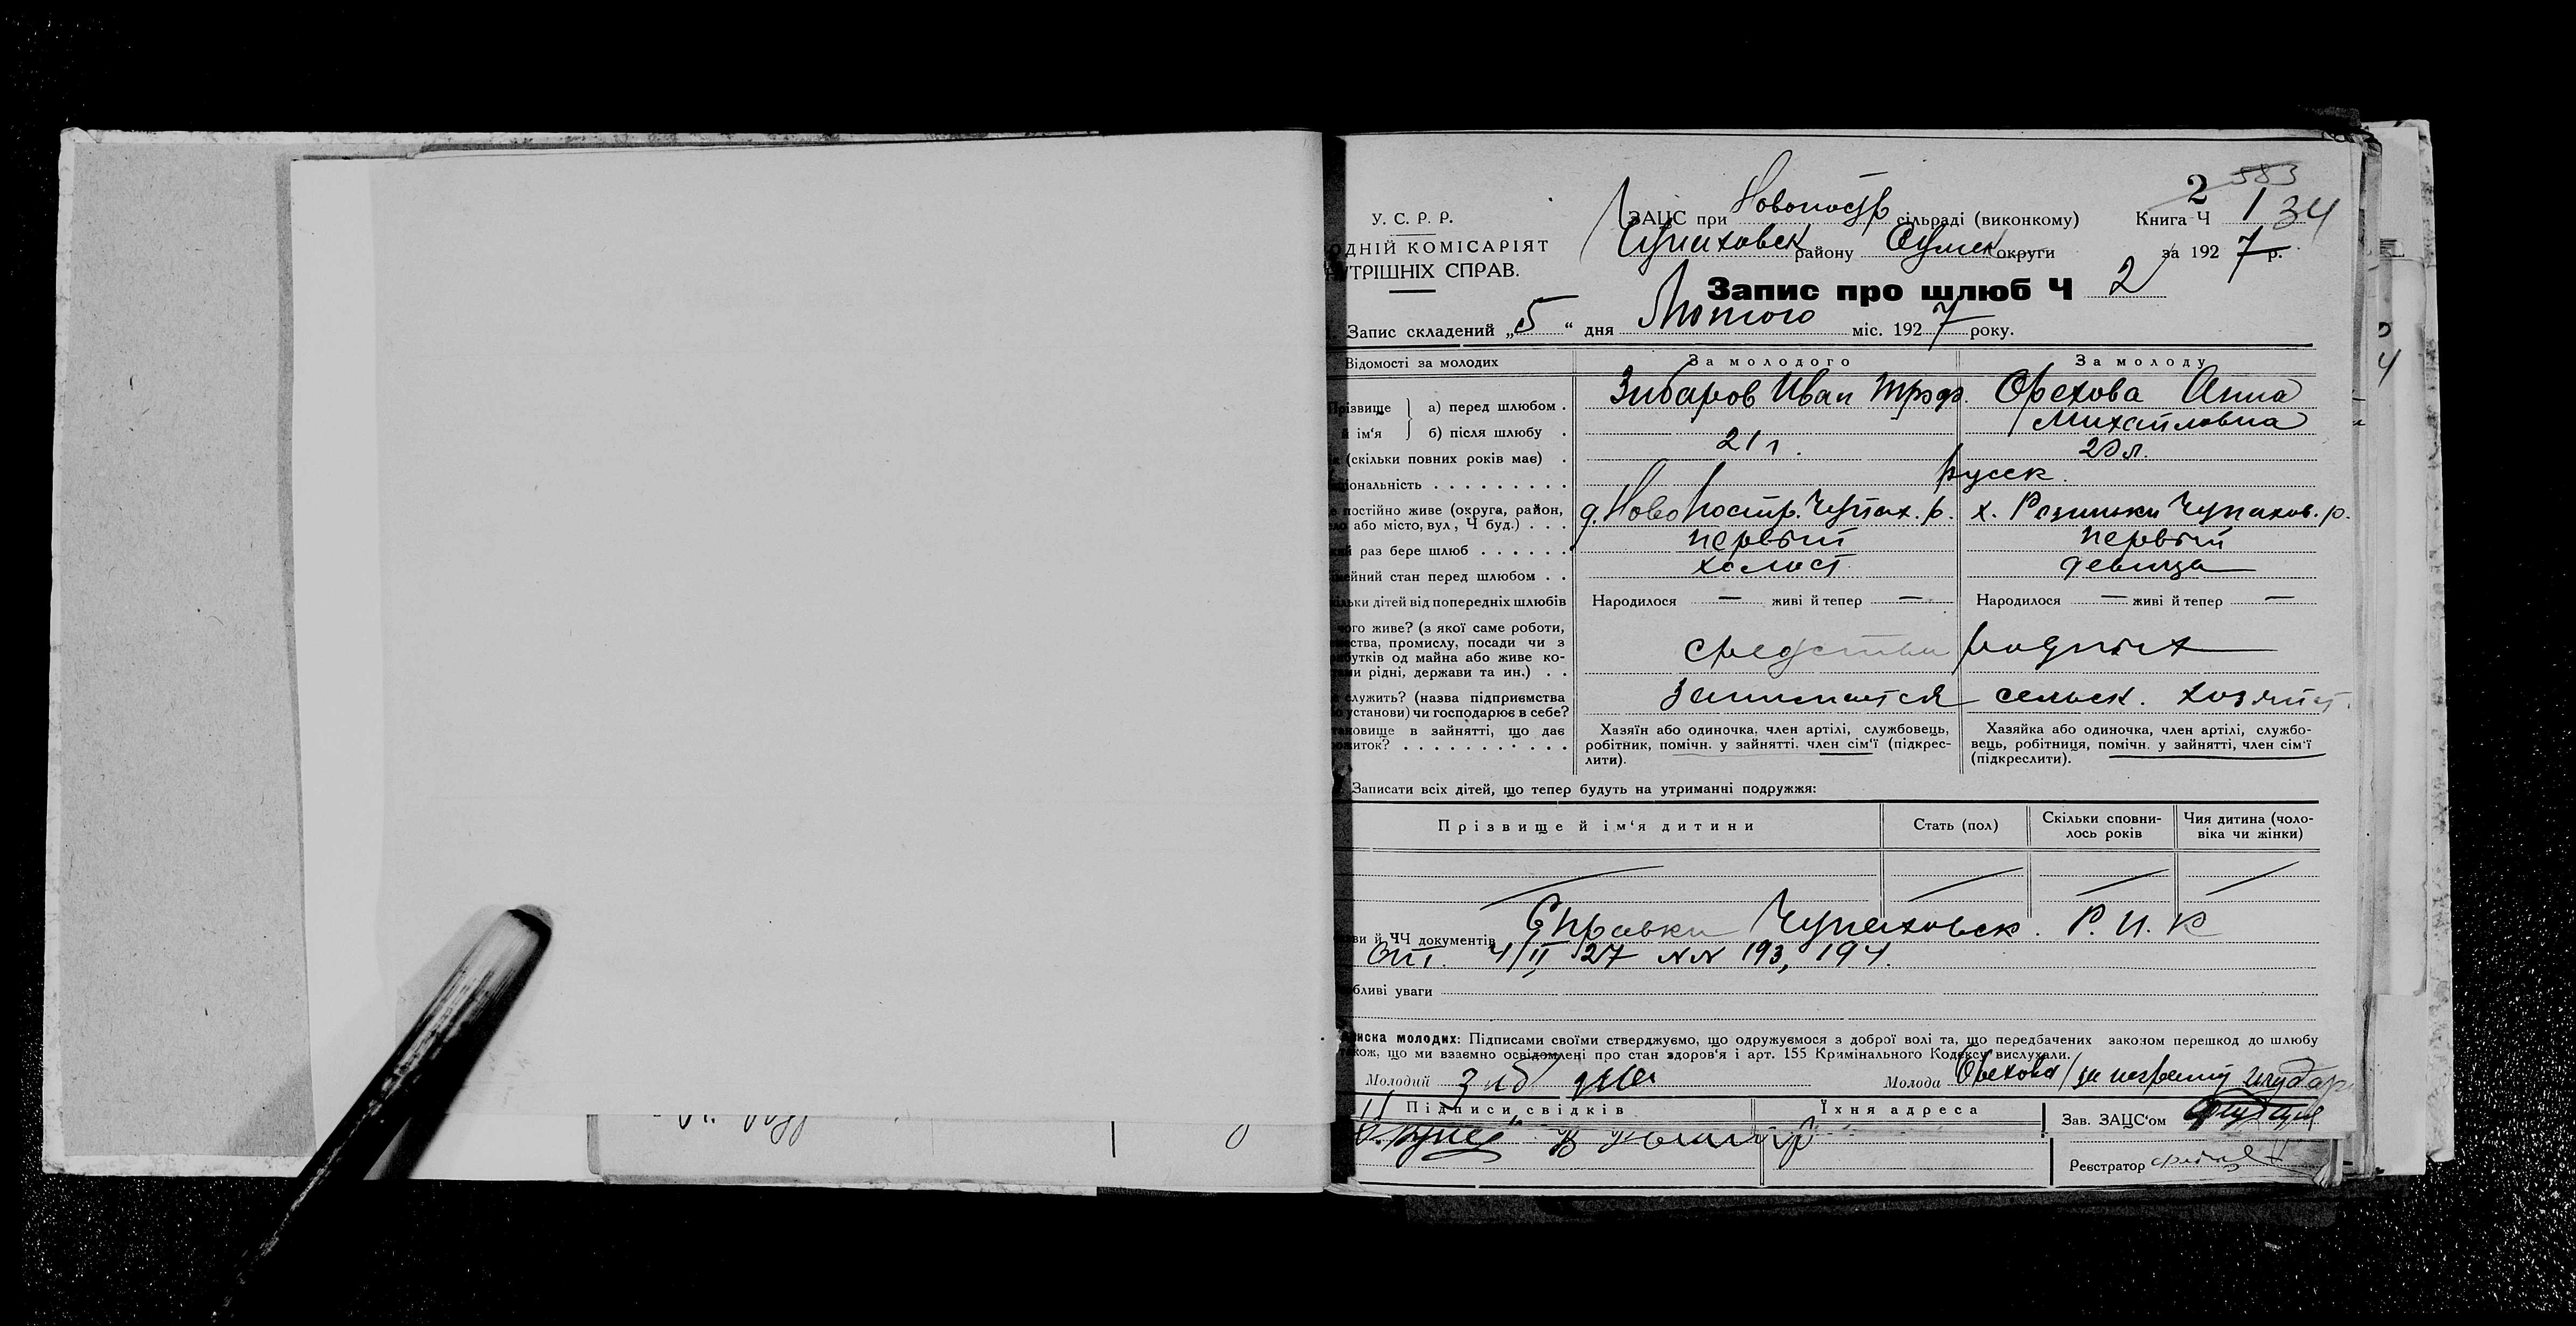 2 583
У. С. Р. Р. ЗАЦС при Новопостр сільраді (виконкому) Книга Ч 1 34
ОДНІЙ КОМІСАРІЯТ Чупаховск району Сумск округи за 1927 р.
УТРІШНІХ СПРАВ.
Запис про шлюб Ч 2
Запис складений „5“ дня Лютого міс. 1927 року.
Відомості за молодих За молодого За молоду
Прізвище а) перед шлюбом . Зибаров Иван Троф. Орехова Анна
й ім'я б) після шлюбу . Михайловна
(скільки повних років має) . 21 г. 20 л.
ціональність . . . . . . . . . русск.
постійно живе (округа, район, д. Новопостр. Чупах. р. х. Чупахов. р.
або місто, вул , Ч буд.) . . .
раз бере шлюб . . . . . . первый первый
мейний стан перед шлюбом . . холост девица
ільки дітей від попередніх шлюбів Народилося — живі й тепер — Народилося — живі й тепер —
чого живе? (з якої саме роботи,
ства, промислу, посади чи з
бутків од майна або живе ко- средства родных
рідні, держави та ин.) . .
служить? (назва підприємства занимается сельск. хозяйст.
установи) чи господарює в себе?
новище в зайнятті, що дає Хазяїн або одиночка, член артілі, службовець, Хазяйка або одиночка, член артілі, службо-
житок? . . . . . . . . . . . робітник, помічн. у зайнятті. член сім'ї (підкрес- вець, робітниця, помічн. у зайнятті, член сім'ї
лити). (підкреслити).
Записати всіх дітей, що тепер будуть на утриманні подружжя:
Прізвище й ім'я дитини Стать (пол) Скільки сповни- Чия дитина (чоло-
лось років віка чи жінки)
ви й ЧЧ документів Справки Чупаховск. Р. И. К
от. 4/II 27 NN 193, 194.
бливі уваги
писка молодих: Підписами своїми стверджуємо, що одружуємося з доброї волі та, що передбачених законом перешкод до шлюбу
також, що ми взаємно освідомлені про стан здоров'я і арт. 155 Кримінального Кодексу вислухали.
Молодий Молода Орехова
Підписи свідків Їхня адреса Зав. ЗАЦС'ом
Реєстратор